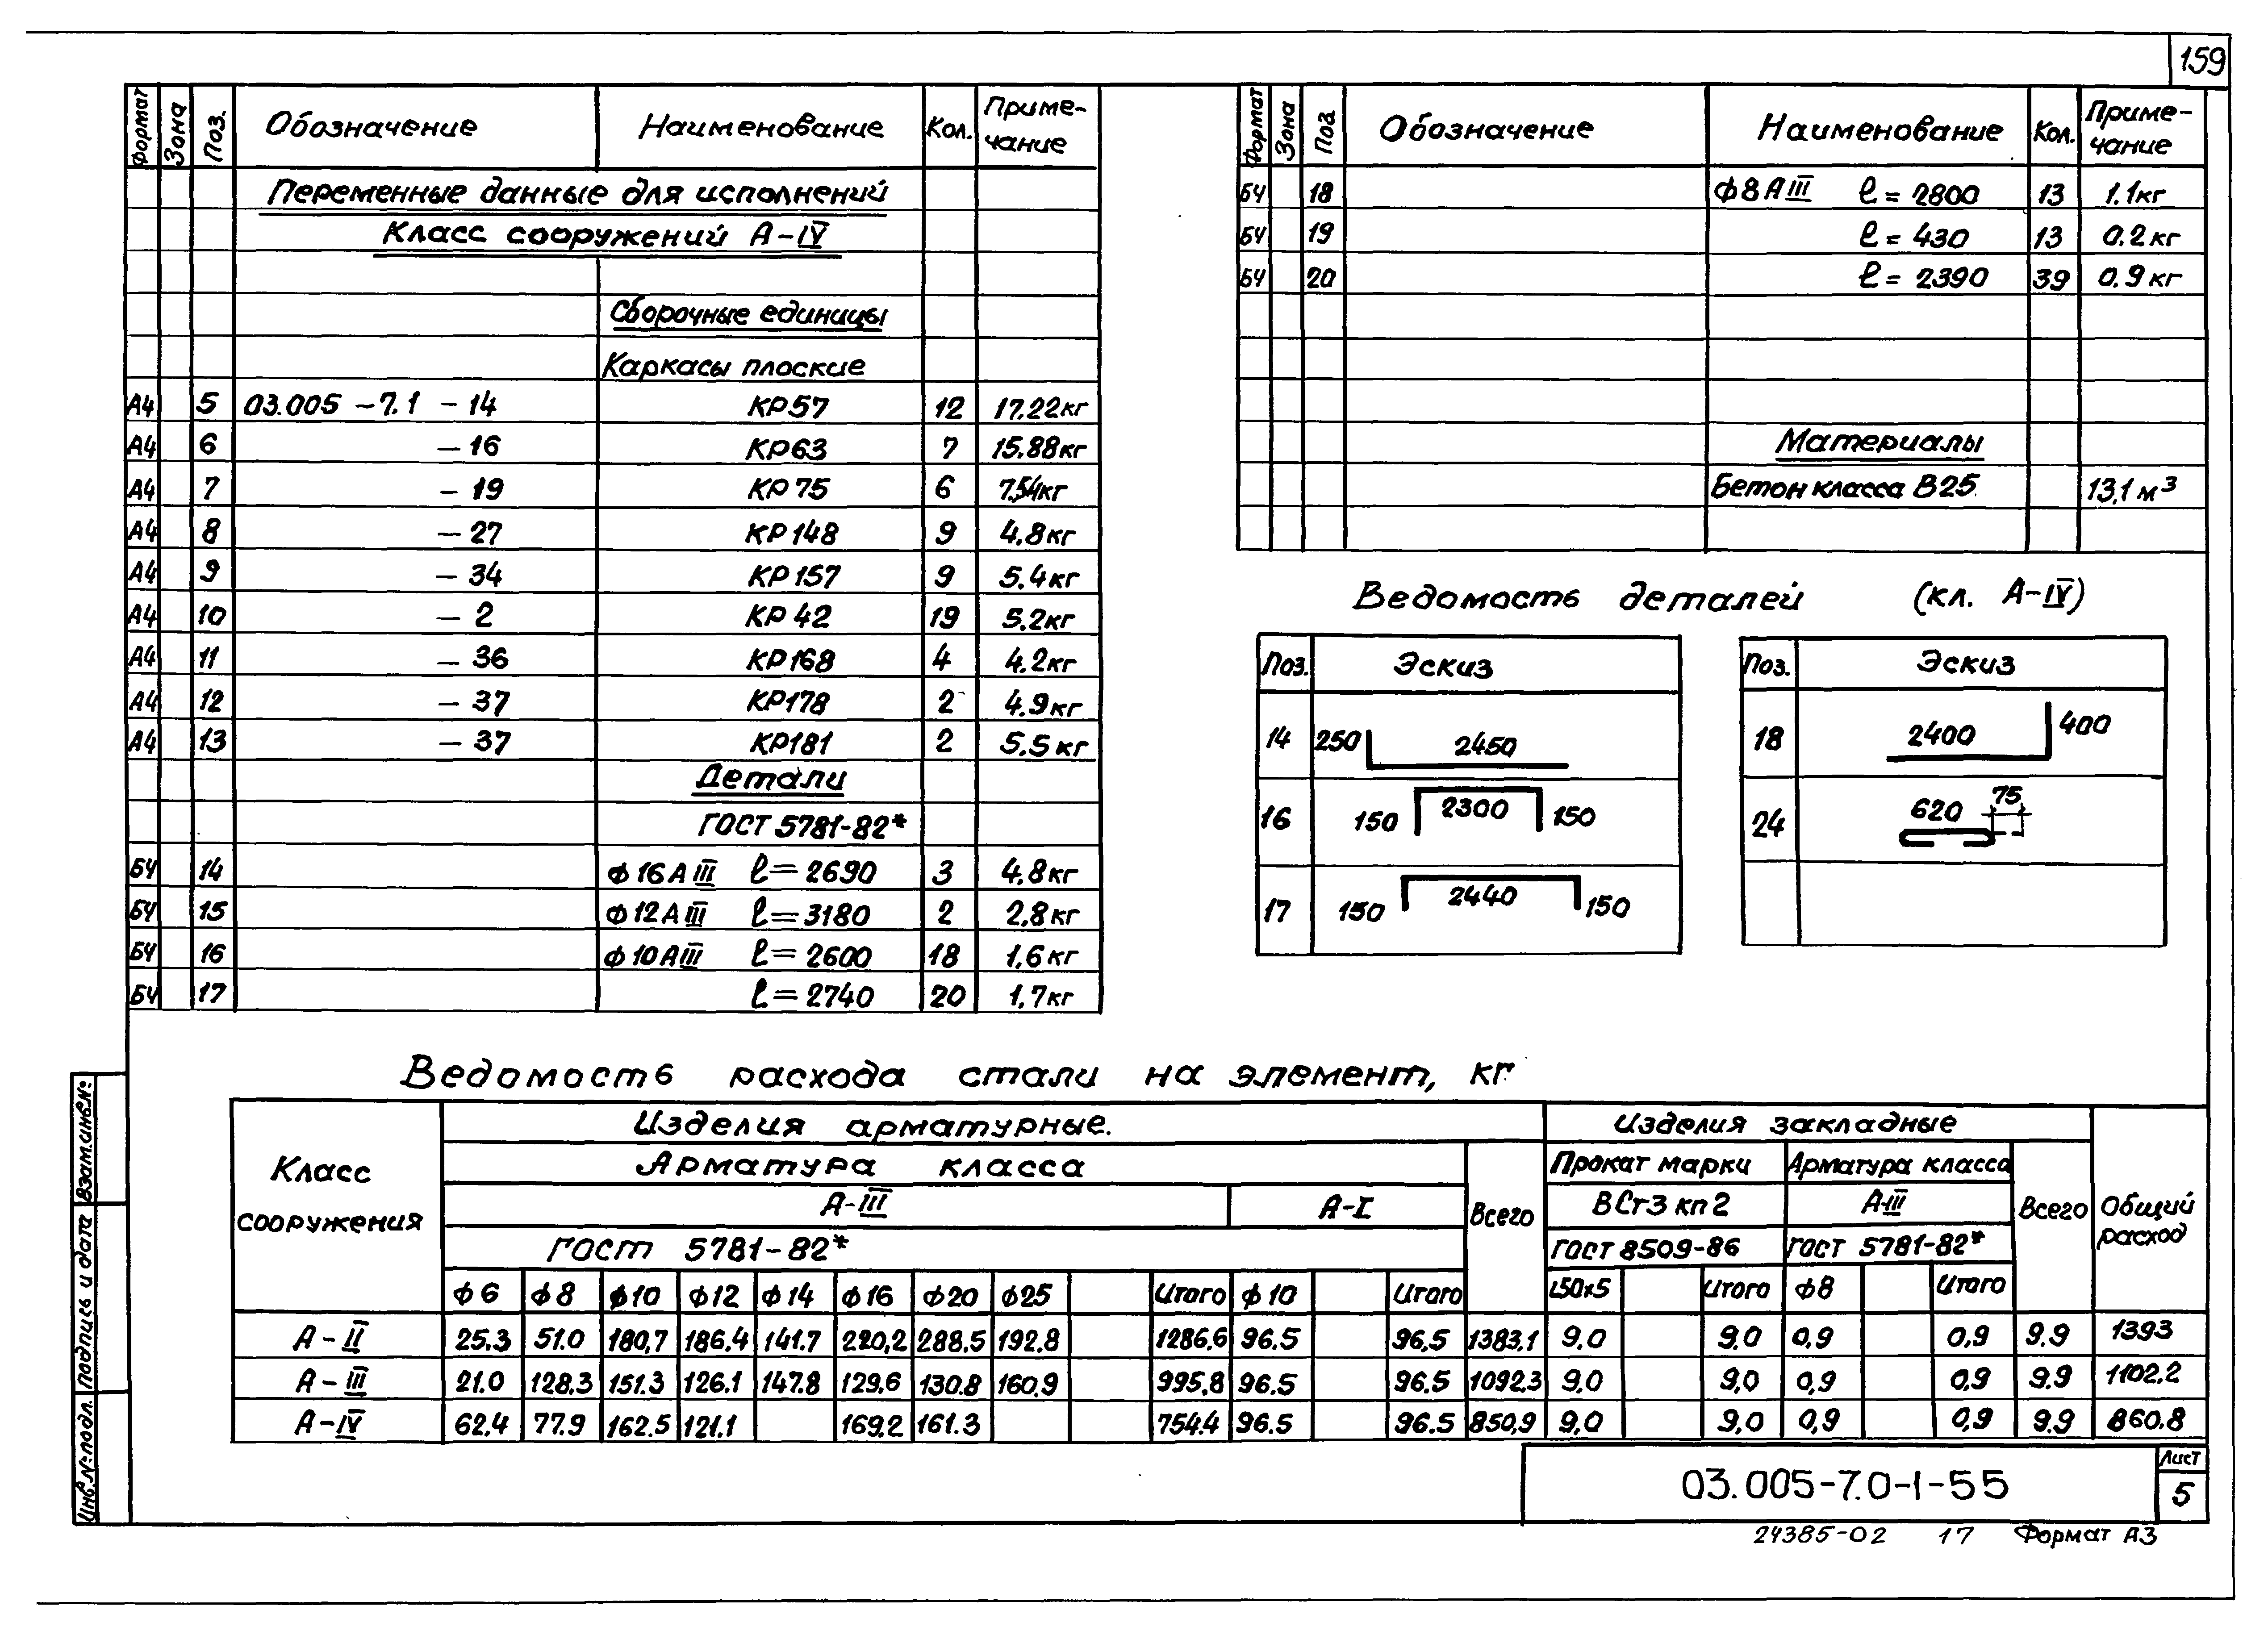 159
Формат Зона Поз. Обозначение Наименование Кол. Приме-чание
Переменные данные для исполнений
Класс сооружений А-IV
Сборочные единицы
Каркасы плоские
А4 5 03.005 -7.1 -14 КР57 12 17.22кг
А4 6 -16 КР63 7 15.88кг
А4 7 -19 КР75 6 7.54кг
А4 8 -27 КР148 9 4.8кг
А4 9 -34 КР157 9 5.4кг
А4 10 -2 КР42 19 5.2кг
А4 11 -36 КР168 4 4.2кг
А4 12 -37 КР178 2 4.9кг
А4 13 -37 КР181 2 5.5кг
Детали
ГОСТ 5781-82*
БЧ 14 ф16АIII ℓ=2690 3 4,8кг
БЧ 15 ф12АIII ℓ=3180 2 2,8кг
БЧ 16 ф10АIII ℓ=2600 18 1,6кг
БЧ 17 ℓ=2740 20 1,7кг
Формат Зона Поз Обозначение Наименование Кол. Приме-чание
БЧ 18 ф8АIII ℓ=2800 13 1.1кг
БЧ 19 ℓ=430 13 0.2кг
БЧ 20 ℓ=2390 39 0.9кг
Материалы
Бетон класса В25 13,1м³
Ведомость деталей (кл. А-IV)
Поз. Эскиз
14 250 2450
16 150 2300 150
17 150 2440 150
Поз. Эскиз
18 2400 400
24 620 75
Ведомость расхода стали на элемент, кг
Класс сооружения
Изделия арматурные.
Изделия закладные
Арматура класса
Всего
Прокат марки
Арматура класса
Всего
Общий расход
А-III А-I
ВСт3кп2
А-III
ГОСТ 5781-82*
ГОСТ 8509-86
ГОСТ 5781-82*
ф6 ф8 ф10 ф12 ф14 ф16 ф20 ф25 Итого ф10 Итого L50x5 Итого ф8 Итого
А-II 25.3 51.0 180,7 186.4 141.7 220,2 288.5 192.8 1286.6 96.5 96.5 1383,1 9.0 9.0 0,9 0,9 9.9 1393
А-III 21.0 128.3 151.3 126.1 147.8 129.6 130.8 160.9 995,8 96.5 96.5 1092.3 9,0 9,0 0,9 0,9 9.9 1102.2
А-IV 62.4 77.9 162.5 121.1 169.2 161.3 754.4 96.5 96.5 850,9 9,0 9.0 0,9 0,9 9.9 860.8
Инв.№подл. Подпись и дата Взам.инв.№
03.005-7.0-1-55
Лист
5
24385-02 17 Формат А3